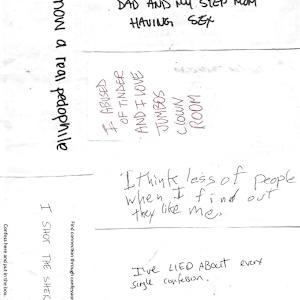 now a real pedophile
DAD AND MY STEP MOM
HAVING SEX
I ABUSED
OF TINDER
AND I LOVE
JUMBOS
CLOWN
ROOM
I think less of people
when I find out
they like me.
I'VE LIED ABOUT every
single confession.
I SHOT THE SHER
Find connection through confession
Confess here and put in the box.